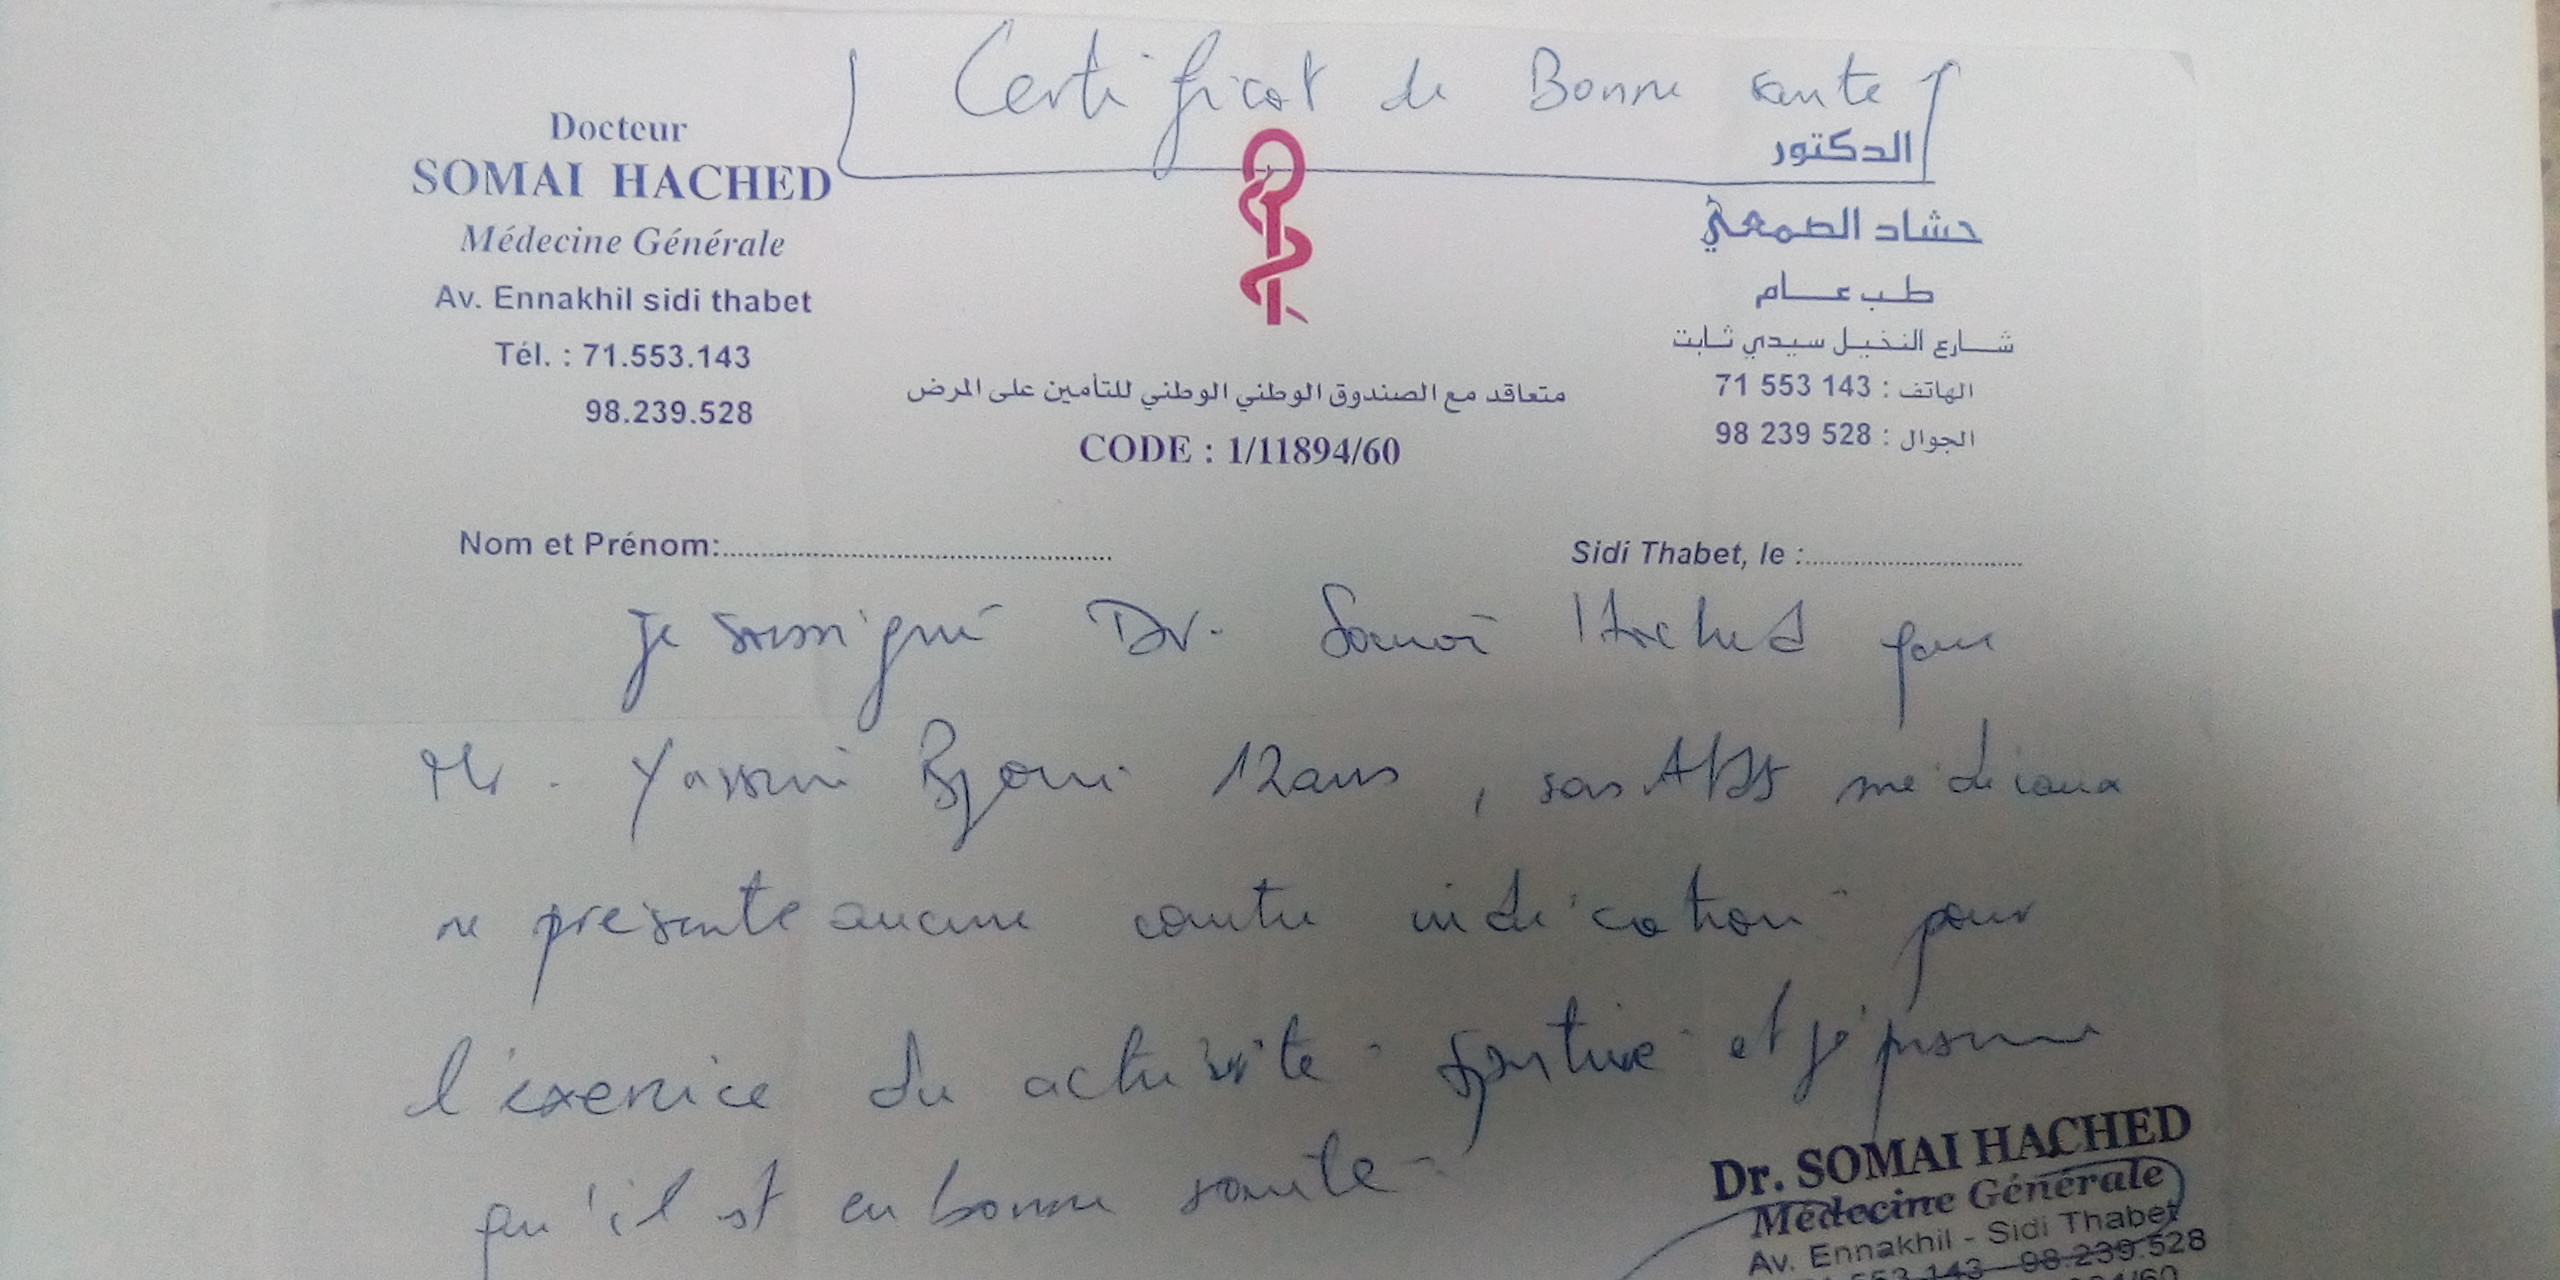 Certificat de Bonne santé
Docteur
SOMAI HACHED
Médecine Générale
Av. Ennakhil sidi thabet
Tél. : 71.553.143
98.239.528
الدكتور
حشاد الصمعي
طب عام
شارع النخيل سيدي ثابت
الهاتف : 71 553 143
الجوال : 98 239 528
متعاقد مع الصندوق الوطني الوطني للتأمين على المرض
CODE : 1/11894/60
Nom et Prénom:
Sidi Thabet, le :
Je soussigné Dr. Somai Hached que
Mr. Yassine 12 ans, sans médicaux
ne présente aucune contre indication pour
l'exercice du activité sportive et je
qu'il est en bonne santé.
Dr. SOMAI HACHED
Médecine Générale
Av. Ennakhil - Sidi Thabet
553.143 - 98.239.528